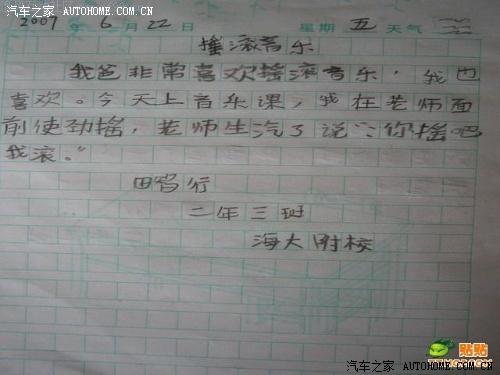 汽车之家 AUTOHOME.COM.CN
2007 年 6 月 22 日 星期 五 天气
摇滚音乐
我爸非常喜欢摇滚音乐，我也
喜欢。今天上音乐课，我在老师面
前使劲摇，老师生汽了说：“你摇吧
我滚。”
二年三班
海大附校
贴贴
汽车之家 AUTOHOME.COM.CN